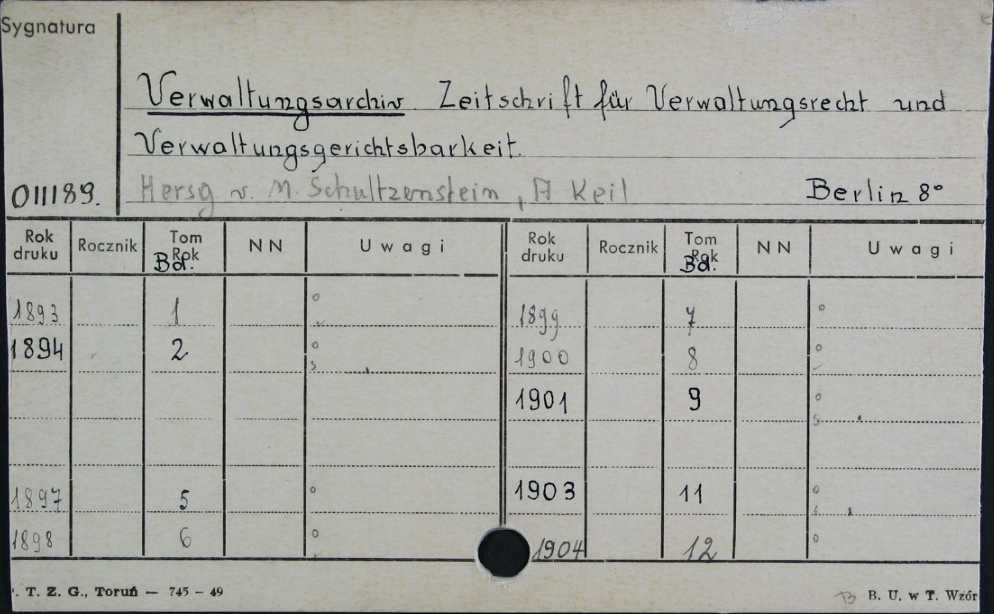 Sygnatura
Verwaltungsarchiv Zeitschrift für Verwaltungsrecht und
Verwaltungsgerichtsbarkeit.
011189. Hersg v. M. Schultzenstein, A Keil Berlin 8°
Rok druku Rocznik Tom Rok Bd. NN Uwagi Rok druku Rocznik Tom Rok Bd. NN Uwagi
1893 1 1899 7
1894 2 1900 8
1901 9
1897 5 1903 11
1898 6 1904 12
. T. Z. G., Toruń — 745 - 49 B. U. w T. Wzór